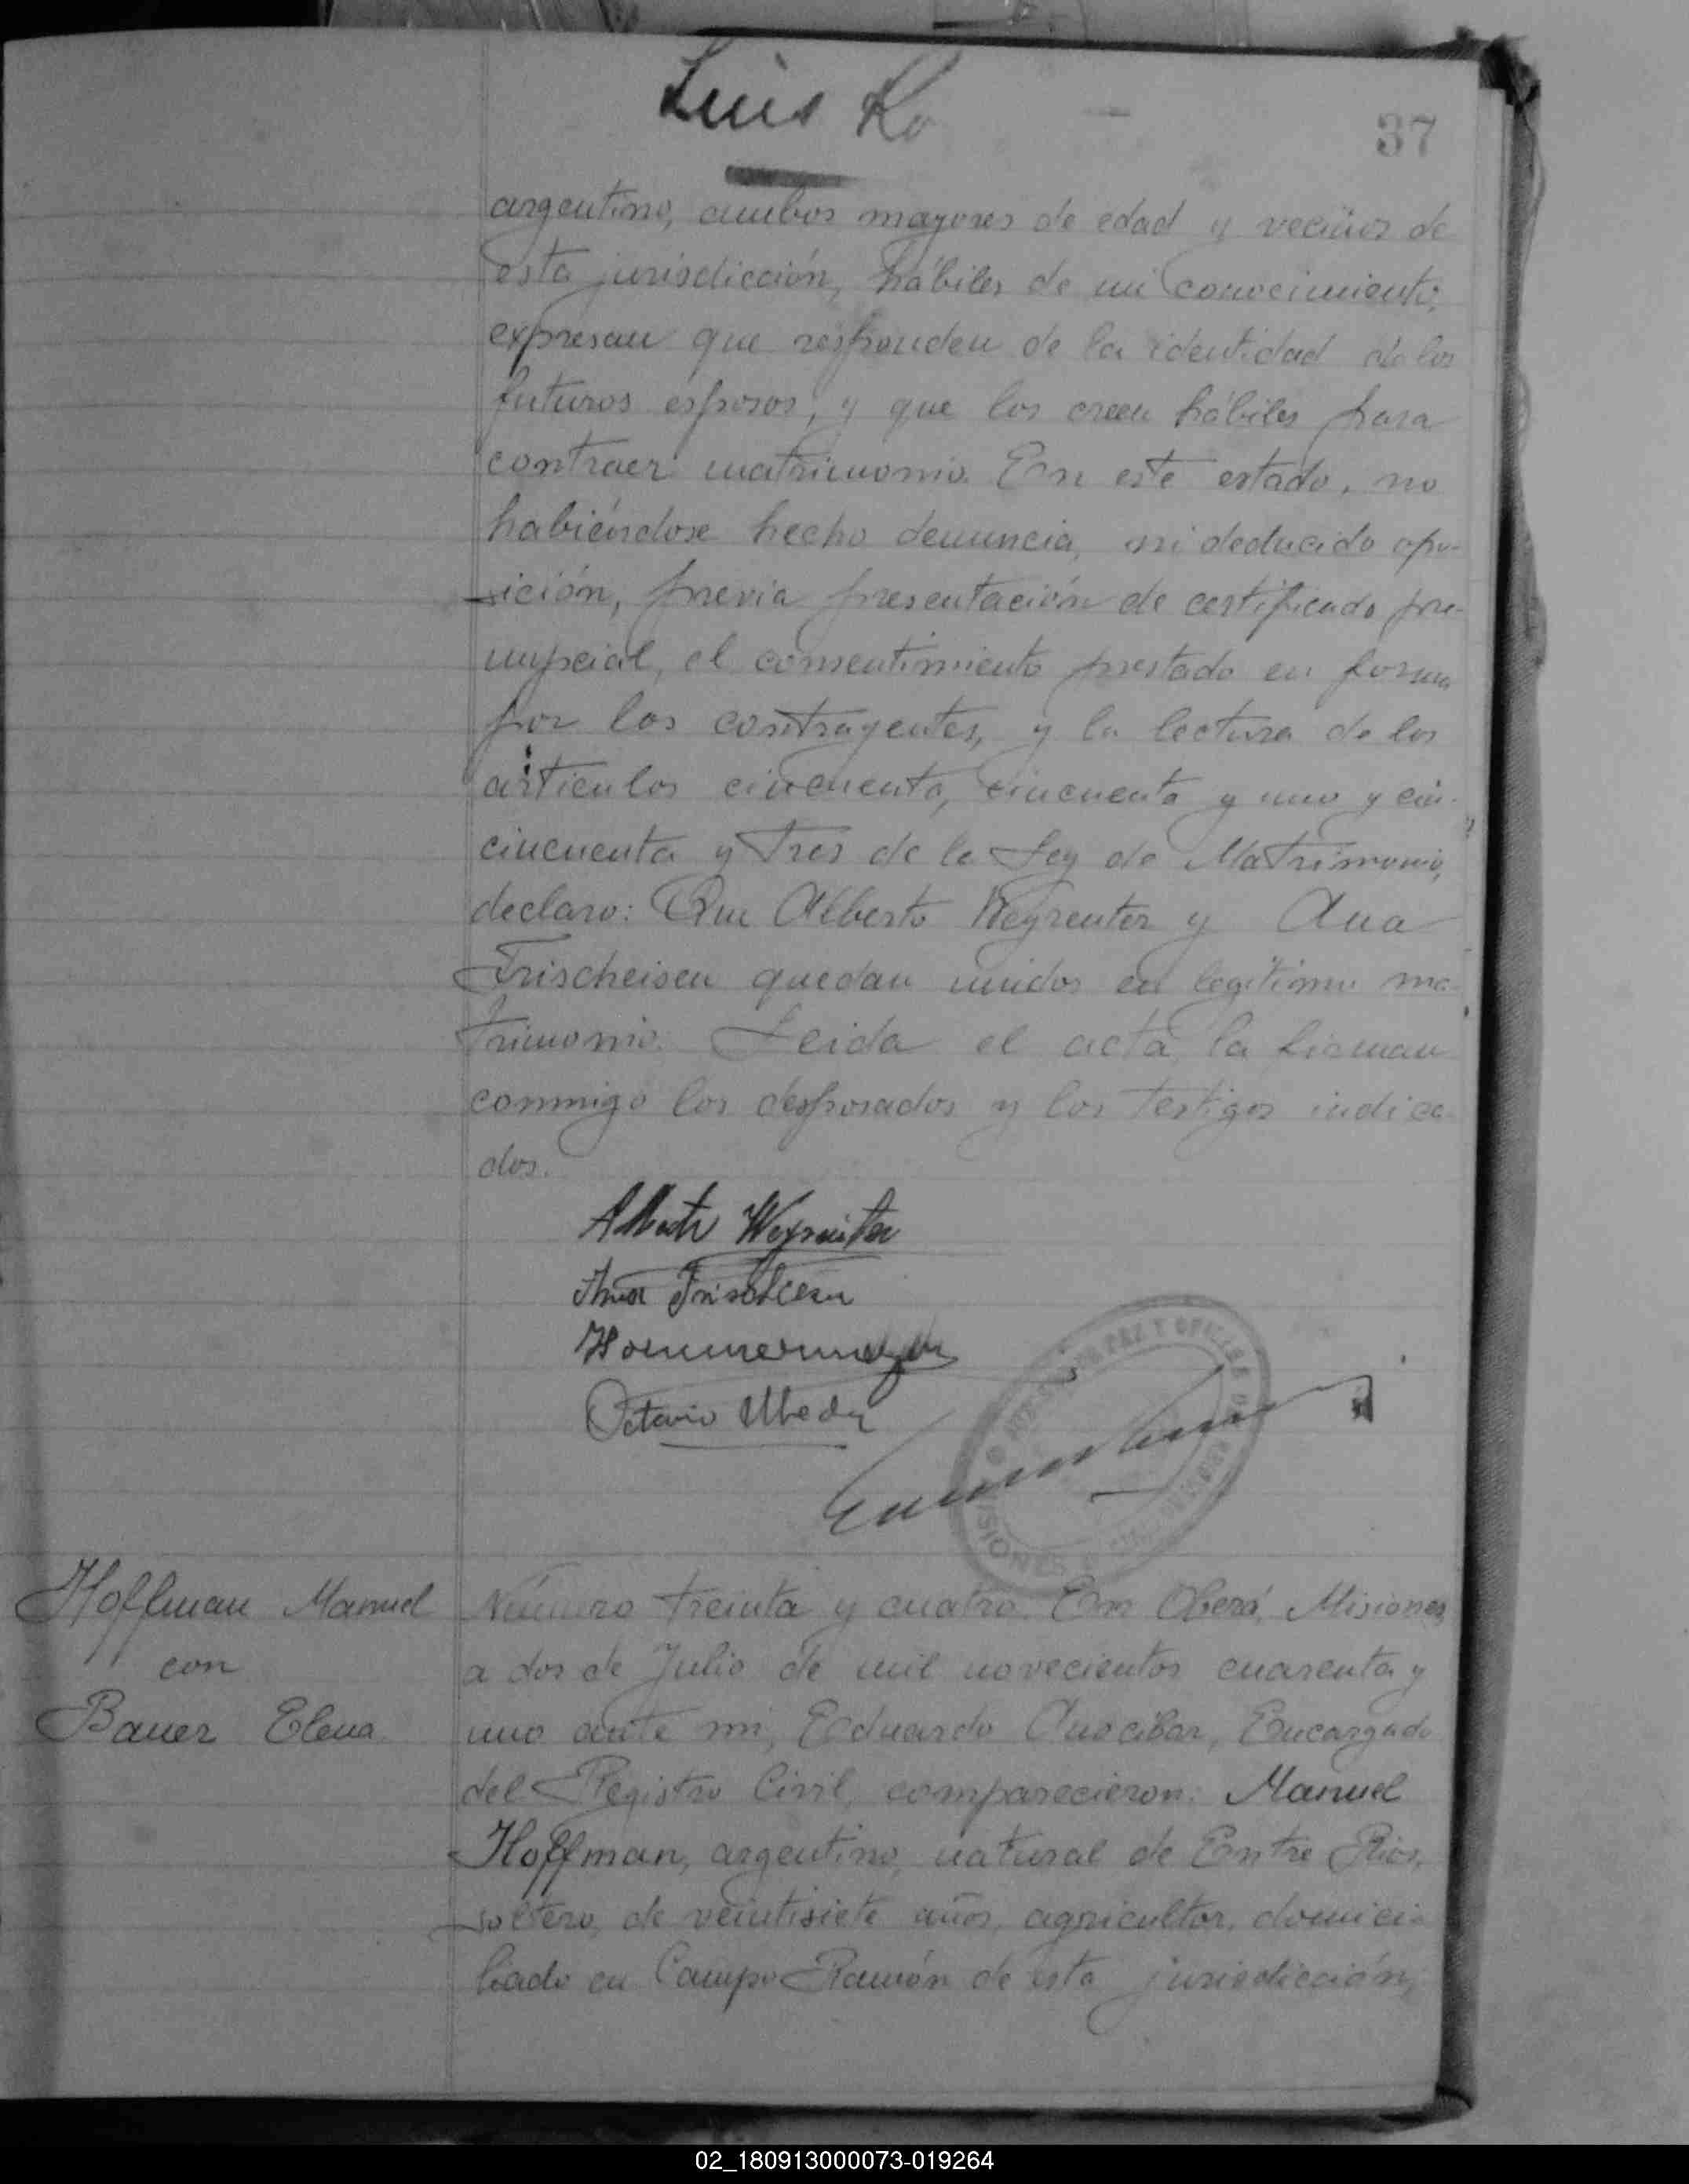 Luis Ko
37
argentino, ambos mayores de edad y vecinos de
esta jurisdicción, hábiles de mi conocimiento,
expresan que responden de la identidad de los
futuros esposos, y que los creen hábiles para
contraer matrimonio. En este estado, no
habiéndose hecho denuncia, ni deducido opo-
sición, previa presentación de certificado pre-
nupcial, el consentimiento prestado en forma
por los contrayentes, y la lectura de los
artículos cincuenta, cincuenta y uno y cin-
cincuenta y tres de la Ley de Matrimonio,
declaro: Que Alberto Weyreuter y Ana
Frischeisen quedan unidos en legítimo ma-
trimonio. Leida el acta, la firman
conmigo los desposados y los testigos indica-
dos.
Alberto Weyreuter
Ana Frischeisen
Octavio Ubeda
MISIONES
Hoffman Manuel
con
Bauer Elena
Número treinta y cuatro. En Oberá, Misiones
a dos de Julio de mil novecientos cuarenta y
uno ante mi, Eduardo Anocibar, Encargado
del Registro Civil, comparecieron: Manuel
Hoffman, argentino, natural de Entre Rios,
soltero, de veintisiete años, agricultor, domici-
liado en Campo Ramón de esta jurisdicción,
02_180913000073-019264